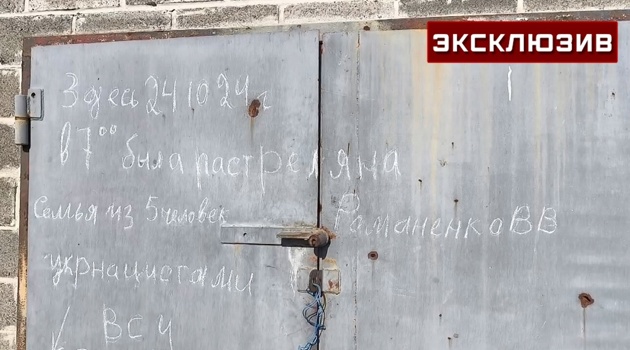 ЭКСКЛЮЗИВ
Здесь 24 10 24 г
в 7 00 была растреляна
Семья из 5 человек Раманенко В В
укрнацистами
ВСУ